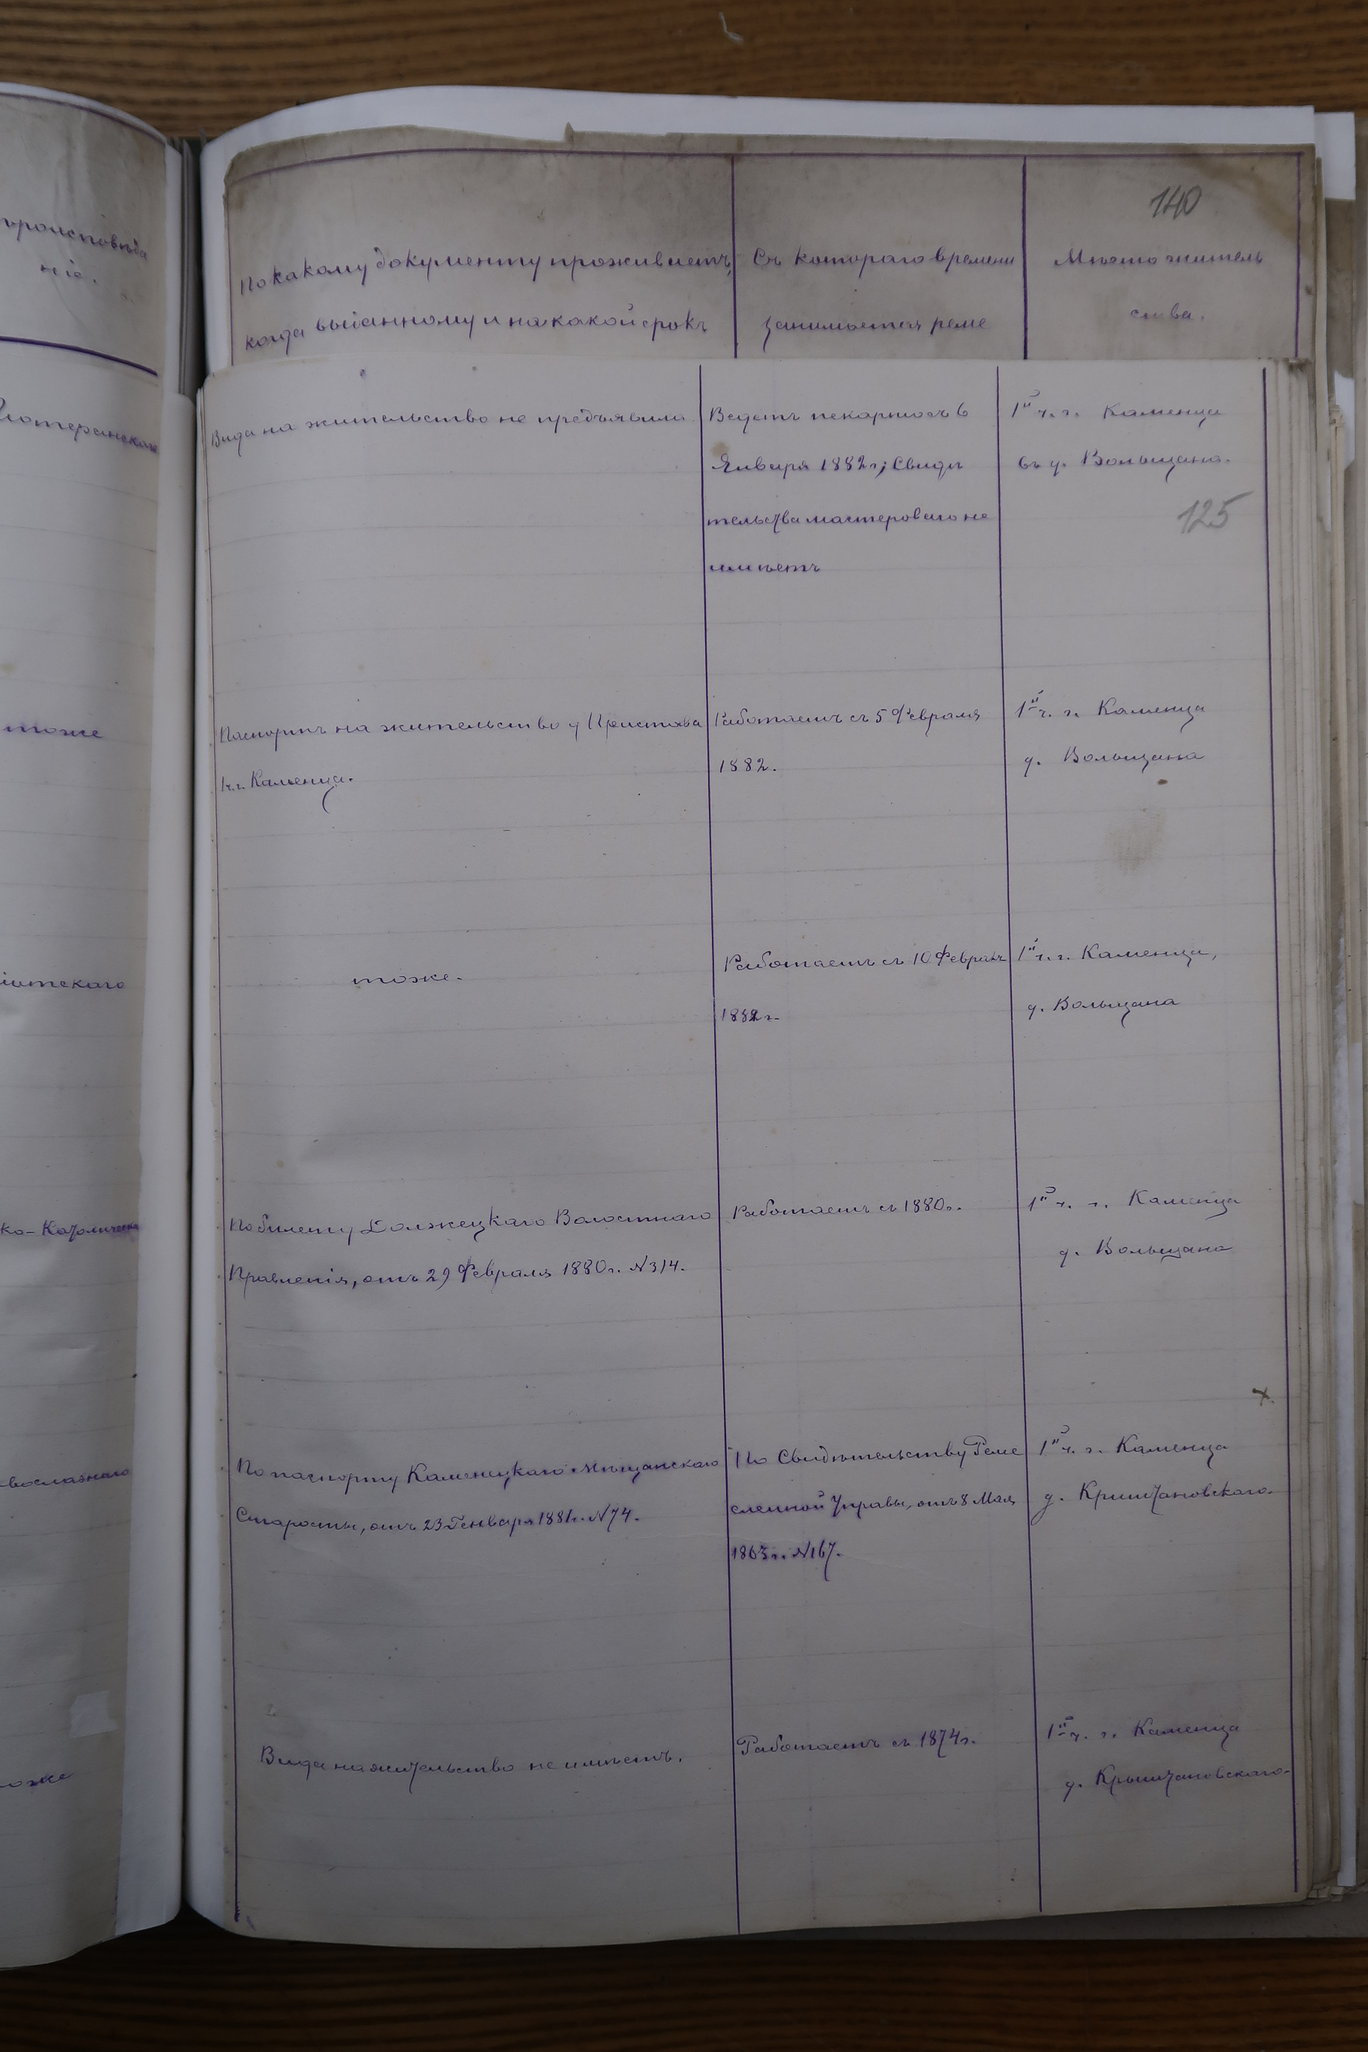 140
вѣроисповѣда
ніе.
По какому документу проживаетъ,
когда выданному и на какой срокъ
Съ котораго времени
занимается реме
Мѣсто житель
ства.
Лютеранскаго
Вида на жительство не предъявила
Ведетъ пекарность 6
Января 1882 г; Свидѣ
тельства мастероваго не
имѣетъ
1й ч. г. Каменца
въ д. Вольщана.
125
тоже
Паспортъ на жительство у Пристава
1 ч. г. Каменца.
Работаетъ съ 5 Февраля
1882.
1й ч. г. Каменца
д. Вольщана
тоже.
Работаетъ съ 10 Февраля
1882 г.
1й ч. г. Каменца,
д. Вольщана
ко-Католическ
По билету Должецкаго Волостнаго
Правленія, отъ 29 Февраля 1880 г. № 314.
Работаетъ съ 1880 г.
1й ч. г. Каменца
д. Вольщана
вославнаго
По паспорту Каменецкаго Мѣщанскаго
Старосты, отъ 23 Генваря 1881 г. № 74.
По Свидѣтельству Реме
сленной Управы, отъ 8 Мая
1863 г. № 167.
1й ч. г. Каменца
д. Криштановскаго.
оже
Вида на жительство не имѣетъ.
Работаетъ съ 1874 г.
1й ч. г. Каменца
д. Крыштановскаго.